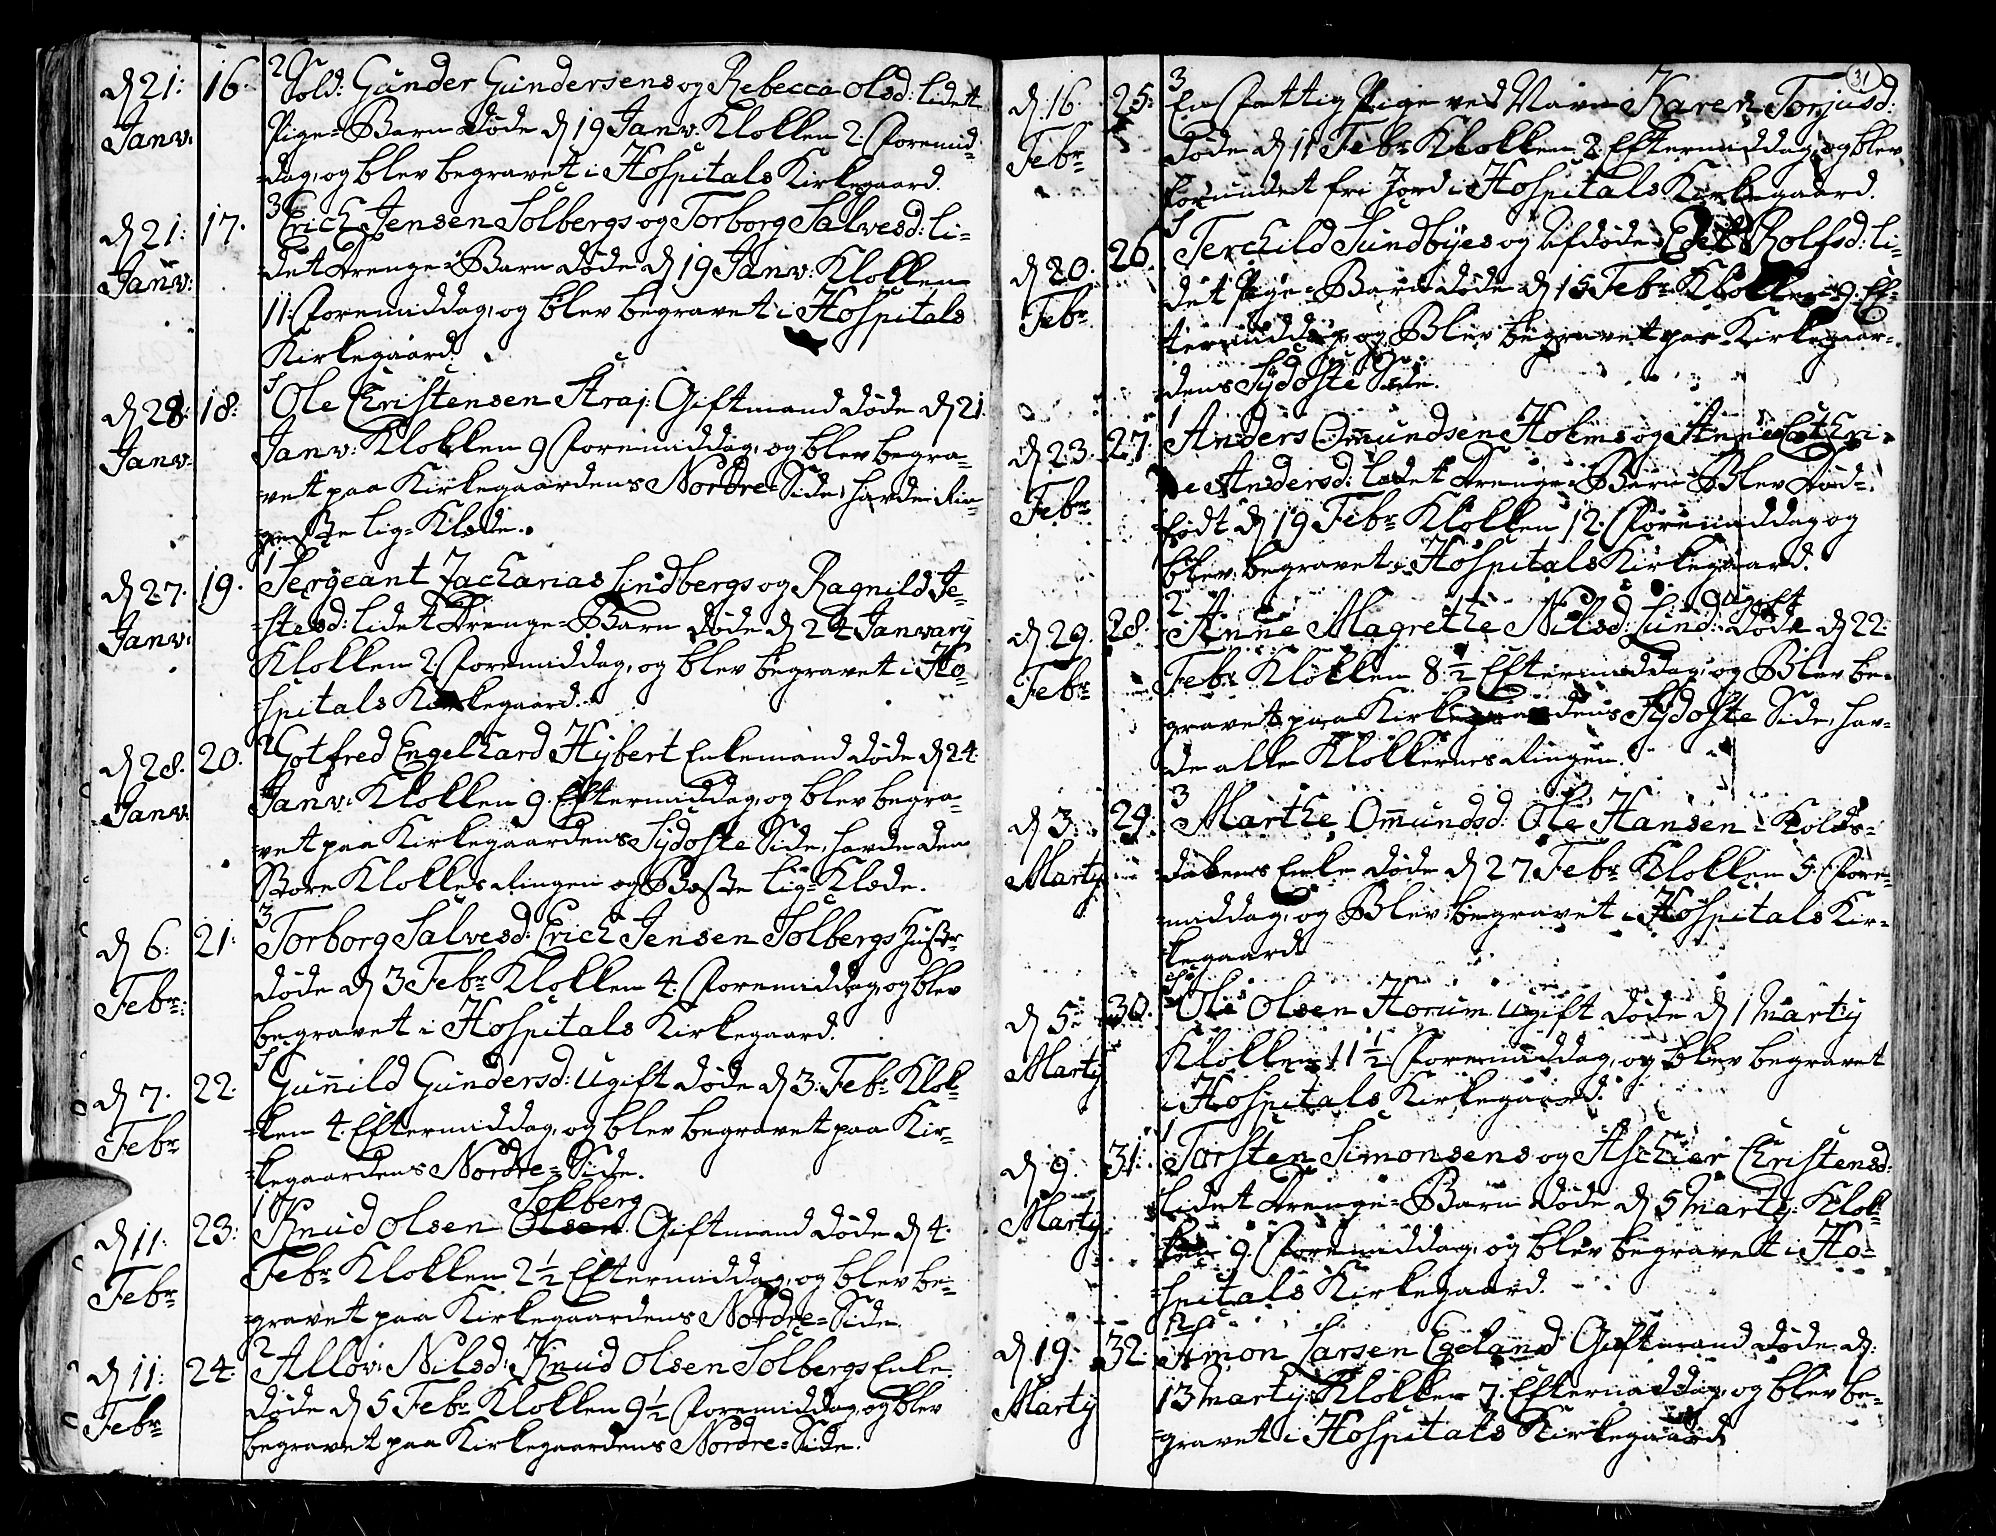 d 21: 16. 2 Sold: Gunder Gundersens og Rebecca Olsd: lidet
Janv: Pige=Barn døde d 19 Janv: Klokken 2. Formid=
=dag, og blev begravet i Hospitals Kirkegaard.
d 21: 17. 3 Erich Jensen Solbergs og Torborg Salvesd: li=
Janv: det Drenge=Barn døde d 19 Janv: Klokken
11. Formiddag, og blev begravet i Hospitals
Kirkegaard.
d 28: 18: Ole Christensen Giftmand døde d 21.
Janv: Janv: Klokken 9 Formiddag, og blev begra=
=vet paa Kirkegaardens Nordre=Side, havde Rin=
lig=Klæde.
d 27. 19. 1 Sergeant Zacharias Lindbergs og Ragnild Je=
Janv: =stesd: lidet Drenge=Barn døde d 24 Janvary
Klokken 2. Formiddag, og blev begravet i Ho=
=spitals Kirkegaard.
d 28. 20. Gotfred Engelhard Hybert Enkemand døde d 24.
Janv: Janv: Klokken 9. Eftermiddag, og blev begra=
=vet paa Kirkegaardens Sydoste Side, havde den
Store Klokkes Ringen og Beste lig=Klæde.
d 6: 21: 3 Torborg Salvesd: Erich Jensen Solbergs Hustr
Febr: døde d 3 Febr Klokken 4. Formiddag, og blev
begravet i Hospitals Kirkegaard.
d 7. 22. Gunnild Gundersd: Ugift døde d 3. Febr: Klok=
Febr =ken 4. Eftermiddag, og blev begravet paa Kir=
=kegaardens Nordre=Side.
Solberg
d 11: 23: 1 Knud Olsen Olsen Giftmand døde d 4.
Febr Febr Klokken 2½ Eftermiddag, og blev be=
=gravet paa Kirkegaardens Nordre=Side.
d 11: 24. 2 Allov: Nilsd: Knud Olsen Solbergs Enke.
Febr døde d 5 Febr. Klokken 9½ Formiddag, og blev
begravet paa Kirkegaardens Nordre=Side.
31
d 16. 25: 3 En Fattig Pige ved Navn Karen Torjusd:
Febr døde d 11 Febr Klokken 2 Eftermiddag, og blev
forundet fri Jord i Hospitals Kirkegaard.
d 20. 26. Terchild Sundbyes og Afdøde Rolfsd: li=
Febr. det Pige=Barn døde d 15 Febr Klokken 9. Ef=
termiddag, og Blev begravet paa Kirkegaar=
=dens Sydoste Side.
d 23. 27. 1 Anders Omundsen Holms og Anne Cathri=
Febr ne Andersd: lidet Drenge=Barn Blev Død=
født d 19 Febr Klokken 12. Formiddag og
blev begravet i Hospitals Kirkegaard.
ugift
d 29. 28. 2 Anne Magrethe Nilsd: Lund: døde d 22.
Febr Febr: Klokken 8½ Eftermiddag, og Blev be=
gravet paa Kirkegaardens Sydoste Side, hav=
=de alle Klokkernes Ringen.
d 3. 29. 3 Marthe Omundsd: Ole Hansen Kolds=
Marty dakens Enke døde d 27 Febr Klokken 5. For=
=middag, og Blev begravet i Hospitals Kir=
=kegaard
d 5 30. Ole Olsen Horum ugift døde d 1 Marty
Marty Klokken 11½ Formiddag, og blev begravet
i Hospitals Kirkegaard.
d 9. 31. 1 Torsten Simonsens og Aschier Christensd:
Marty lidet Drenge=Barn døde d 5 Marty: Klok=
ken 9. Formiddag, og blev begravet i Ho=
=spitals Kirkegaard.
d 19. 32. Simon Larsen Egeland Giftmand døde d:
Marty 13 Marty Klokken 7. Eftermiddag, og blev be=
=gravet i Hospitals Kirkegaard